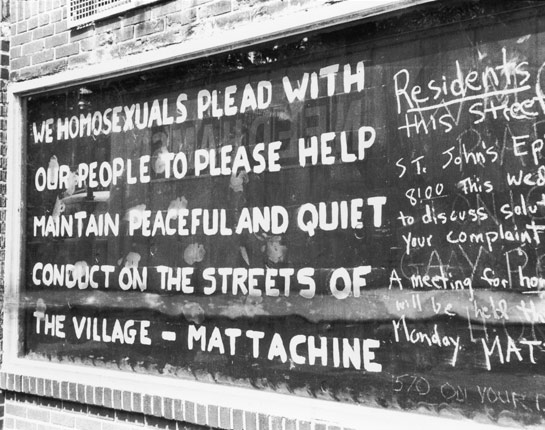 WE HOMOSEXUALS PLEAD WITH
OUR PEOPLE TO PLEASE HELP
MAINTAIN PEACEFUL AND QUIET
CONDUCT ON THE STREETS OF
THE VILLAGE - MATTACHINE
Residents
this street
ST. John's Ep
8:00 This Wed
to discuss solut
your complaint
A meeting for hom
will be held th
Monday. MATT